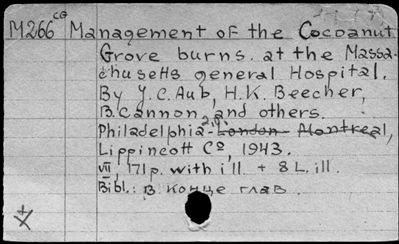 M266 CG Management of the Cocoanut
Grove burns at the Massa-
chusetts general Hospital.
By J.C. Aub, H.K. Beecher,
B. Cannon and others.
Philadelphia- London- Montreal,
Lippincott Cº, 1943.
VII, 171p. with ill. + 8 L. ill.
Bibl.: в конце глав.